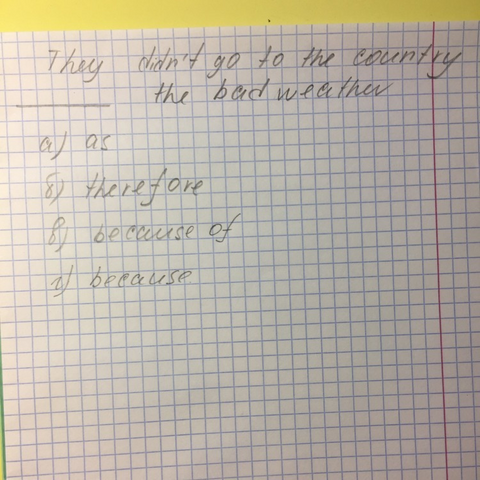 They didn't go to the country
________ the bad weather
а) as
б) therefore
в) because of
г) because